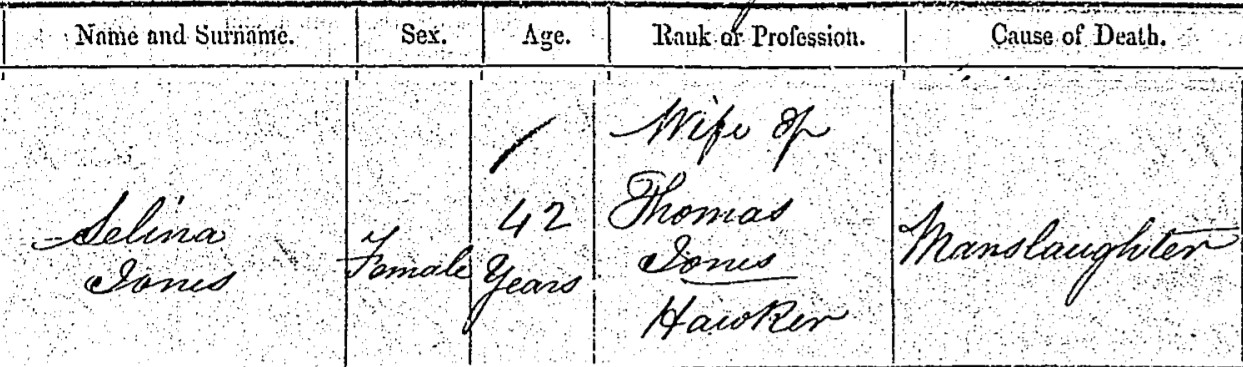 Name and Surname. Sex. Age. Rank or Profession. Cause of Death.
Selina
Jones
Female
42
Years
Wife of
Thomas
Jones
Hawker
Manslaughter